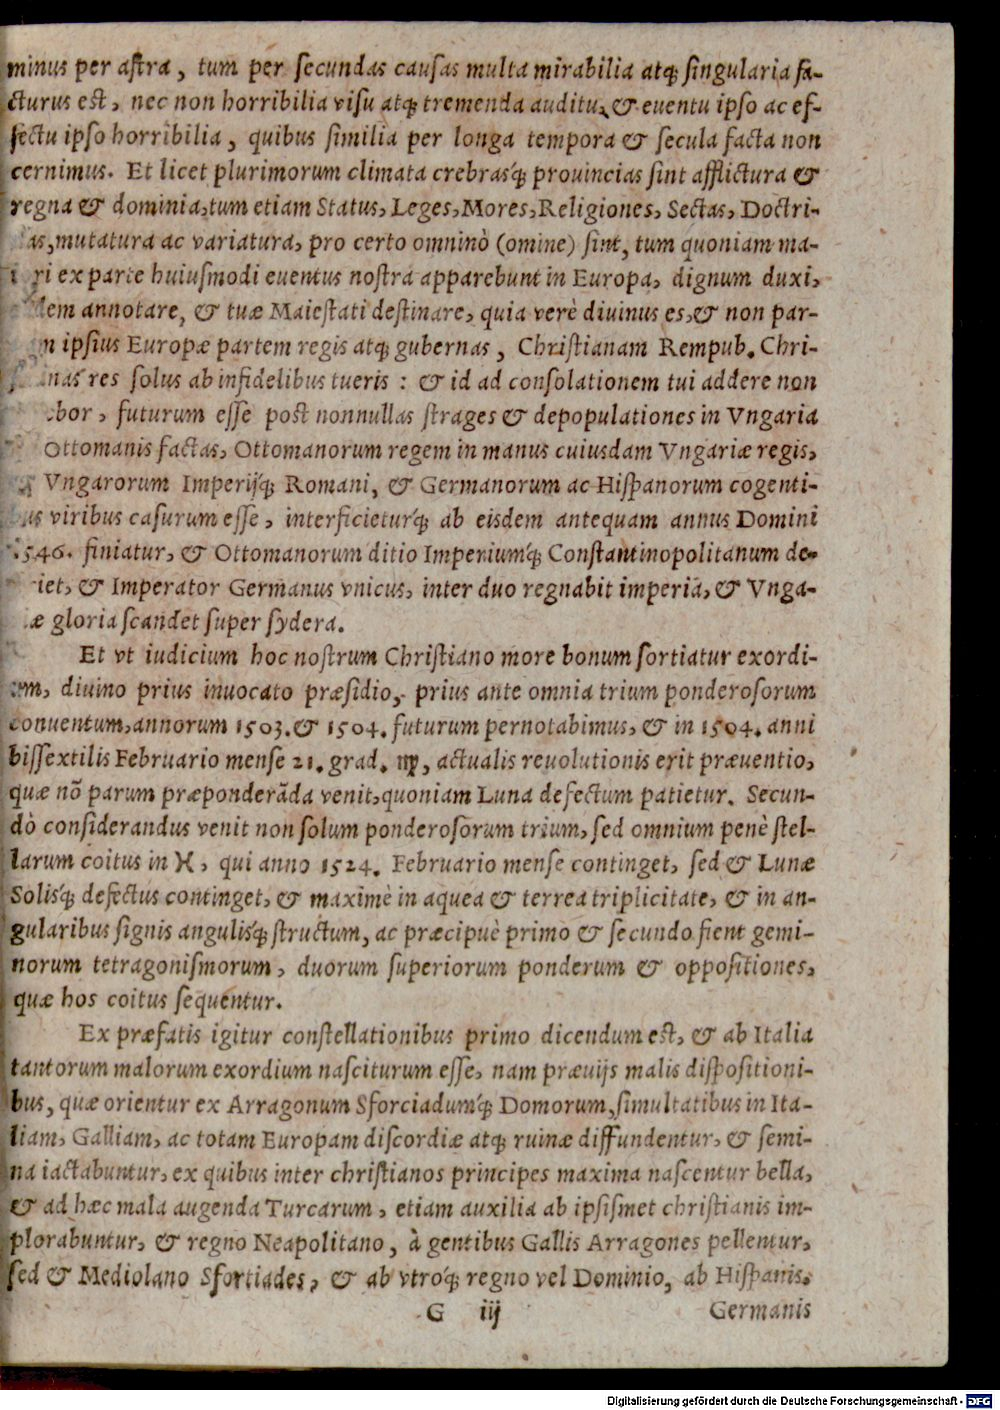 minus per astra, tum per secundas causas multa mirabilia atq́; singularia fa-
cturus est, nec non horribilia visu atq́; tremenda auditu, & euentu ipso ac ef-
fectu ipso horribilia, quibus similia per longa tempora & secula facta non
cernimus. Et licet plurimorum climata crebrasq́; prouincias sint afflictura &
regna & dominia, tum etiam Status, Leges, Mores, Religiones, Sectas, Doctri-
as, mutatura ac variatura, pro certo omninò (omine) sint, tum quoniam ma-
ri ex parte huiusmodi euentus nostra apparebunt in Europa, dignum duxi,
dem annotare, & tuæ Maiestati destinare, quia verè diuinus es, & non par-
n ipsius Europæ partem regis atq́; gubernas, Christianam Rempub. Chri-
nas res solus ab infidelibus tueris: & id ad consolationem tui addere non
bor, futurum esse post nonnullas strages & depopulationes in Vngaria
Ottomanis factas, Ottomanorum regem in manus cuiusdam Vngariæ regis,
Vngarorum Imperijq́; Romani, & Germanorum ac Hispanorum cogenti-
us viribus casurum esse, interficieturq́; ab eisdem antequam annus Domini
1546. finiatur, & Ottomanorum ditio Imperiumq́; Constantinopolitanum de-
iet, & Imperator Germanus vnicus, inter duo regnabit imperia, & Vnga-
æ gloria scandet super sydera.
Et vt iudicium hoc nostrum Christiano more bonum sortiatur exordi-
um, diuino prius inuocato præsidio, prius ante omnia trium ponderosorum
conuentum, annorum 1503. & 1504. futurum pernotabimus, & in 1504. anni
bissextilis Februario mense 21. grad. ♍, actualis reuolutionis erit præuentio,
quæ nō parum præponderāda venit, quoniam Luna defectum patietur. Secun-
dò considerandus venit non solum ponderosorum trium, sed omnium penè stel-
larum coitus in ♓, qui anno 1524. Februario mense continget, sed & Lunæ
Solisq́; defectus continget, & maximè in aquea & terrea triplicitate, & in an-
gularibus signis angulisq́; structum, ac præcipuè primo & secundo fient gemi-
norum tetragonismorum, duorum superiorum ponderum & oppositiones,
quæ hos coitus sequentur.
Ex præfatis igitur constellationibus primo dicendum est, & ab Italia
tantorum malorum exordium nasciturum esse, nam præuijs malis dispositioni-
bus, quæ orientur ex Arragonum Sforciadumq́; Domorum, simultatibus in Ita-
liam, Galliam, ac totam Europam discordiæ atq́; ruinæ diffundentur, & semi-
na iactabuntur, ex quibus inter christianos principes maxima nascentur bella,
& ad hæc mala augenda Turcarum, etiam auxilia ab ipsismet christianis im-
plorabuntur, & regno Neapolitano, à gentibus Gallis Arragones pellentur,
sed & Mediolano Sfortiades, & ab vtroq́; regno vel Dominio, ab Hispanis,
G iij Germanis
Digitalisierung gefördert durch die Deutsche Forschungsgemeinschaft - DFG